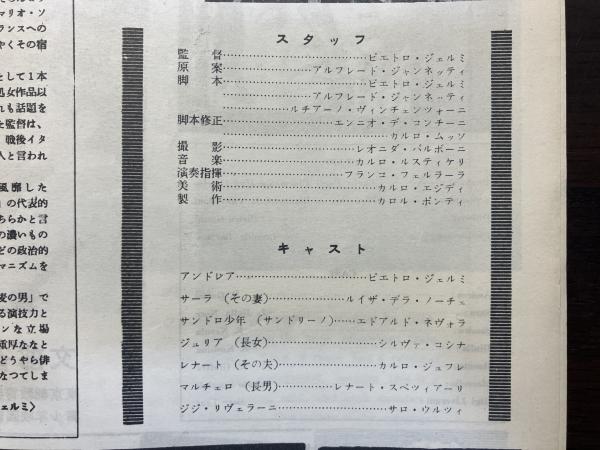 スタッフ
監督……ピエトロ・ジェルミ
原案……アルフレード・ジャンネッティ
脚本……ピエトロ・ジェルミ
……アルフレード・ジャンネッティ
……ルチアーノ・ヴィンチェンツォーニ
脚本修正……エンニオ・デ・コンチーニ
……カルロ・ムッソ
撮影……レオニダ・バルボーニ
音楽……カルロ・ルスティケリ
演奏指揮……フランコ・フェルラーラ
美術……カルロ・エジディ
製作……カロル・ポンティ
キャスト
アンドレア……ピエトロ・ジェルミ
サーラ (その妻)……ルイザ・デラ・ノーチェ
サンドロ少年 (サンドリーノ)……エドアルド・ネヴォラ
ジュリア (長女)……シルヴァ・コシナ
レナート (その夫)……カルロ・ジュフレ
マルチェロ (長男)……レナート・スペツィアーリ
ジジ・リヴェラーニ……サロ・ウルツィ
マリオ・ソ
ランスへの
やくその宿
として1本
処女作品以
れも話題を
た監督は、
戦後イタ
人と言われ
風靡した
」の代表的
ちらかと言
の濃いもの
どの政治的
マニズムを
麦の男」で
る演技力と
ンな立場
重厚ななと
どうやら俳
なつてしま
ェルミ〉